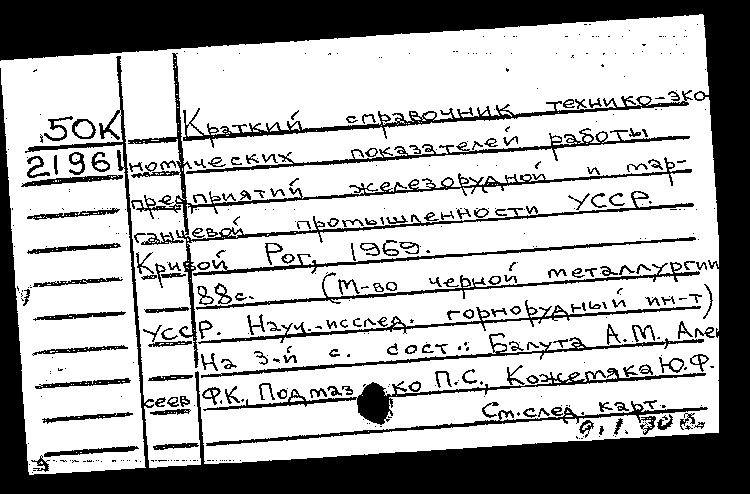 50К
21961
Краткий справочник технико-эко-
номических показателей работы
предприятий железорудной и мар-
ганцевой промышленности УССР.
Кривой Рог, 1969.
88с. (М-во черной металлургии
УССР. Науч.-исслед. горнорудный ин-т)
На 3-й с. сост.: Балута А.М., Алек
сеев Ф.К., Подмаз ко П.С., Кожемяка Ю.Ф.
См. след. карт.